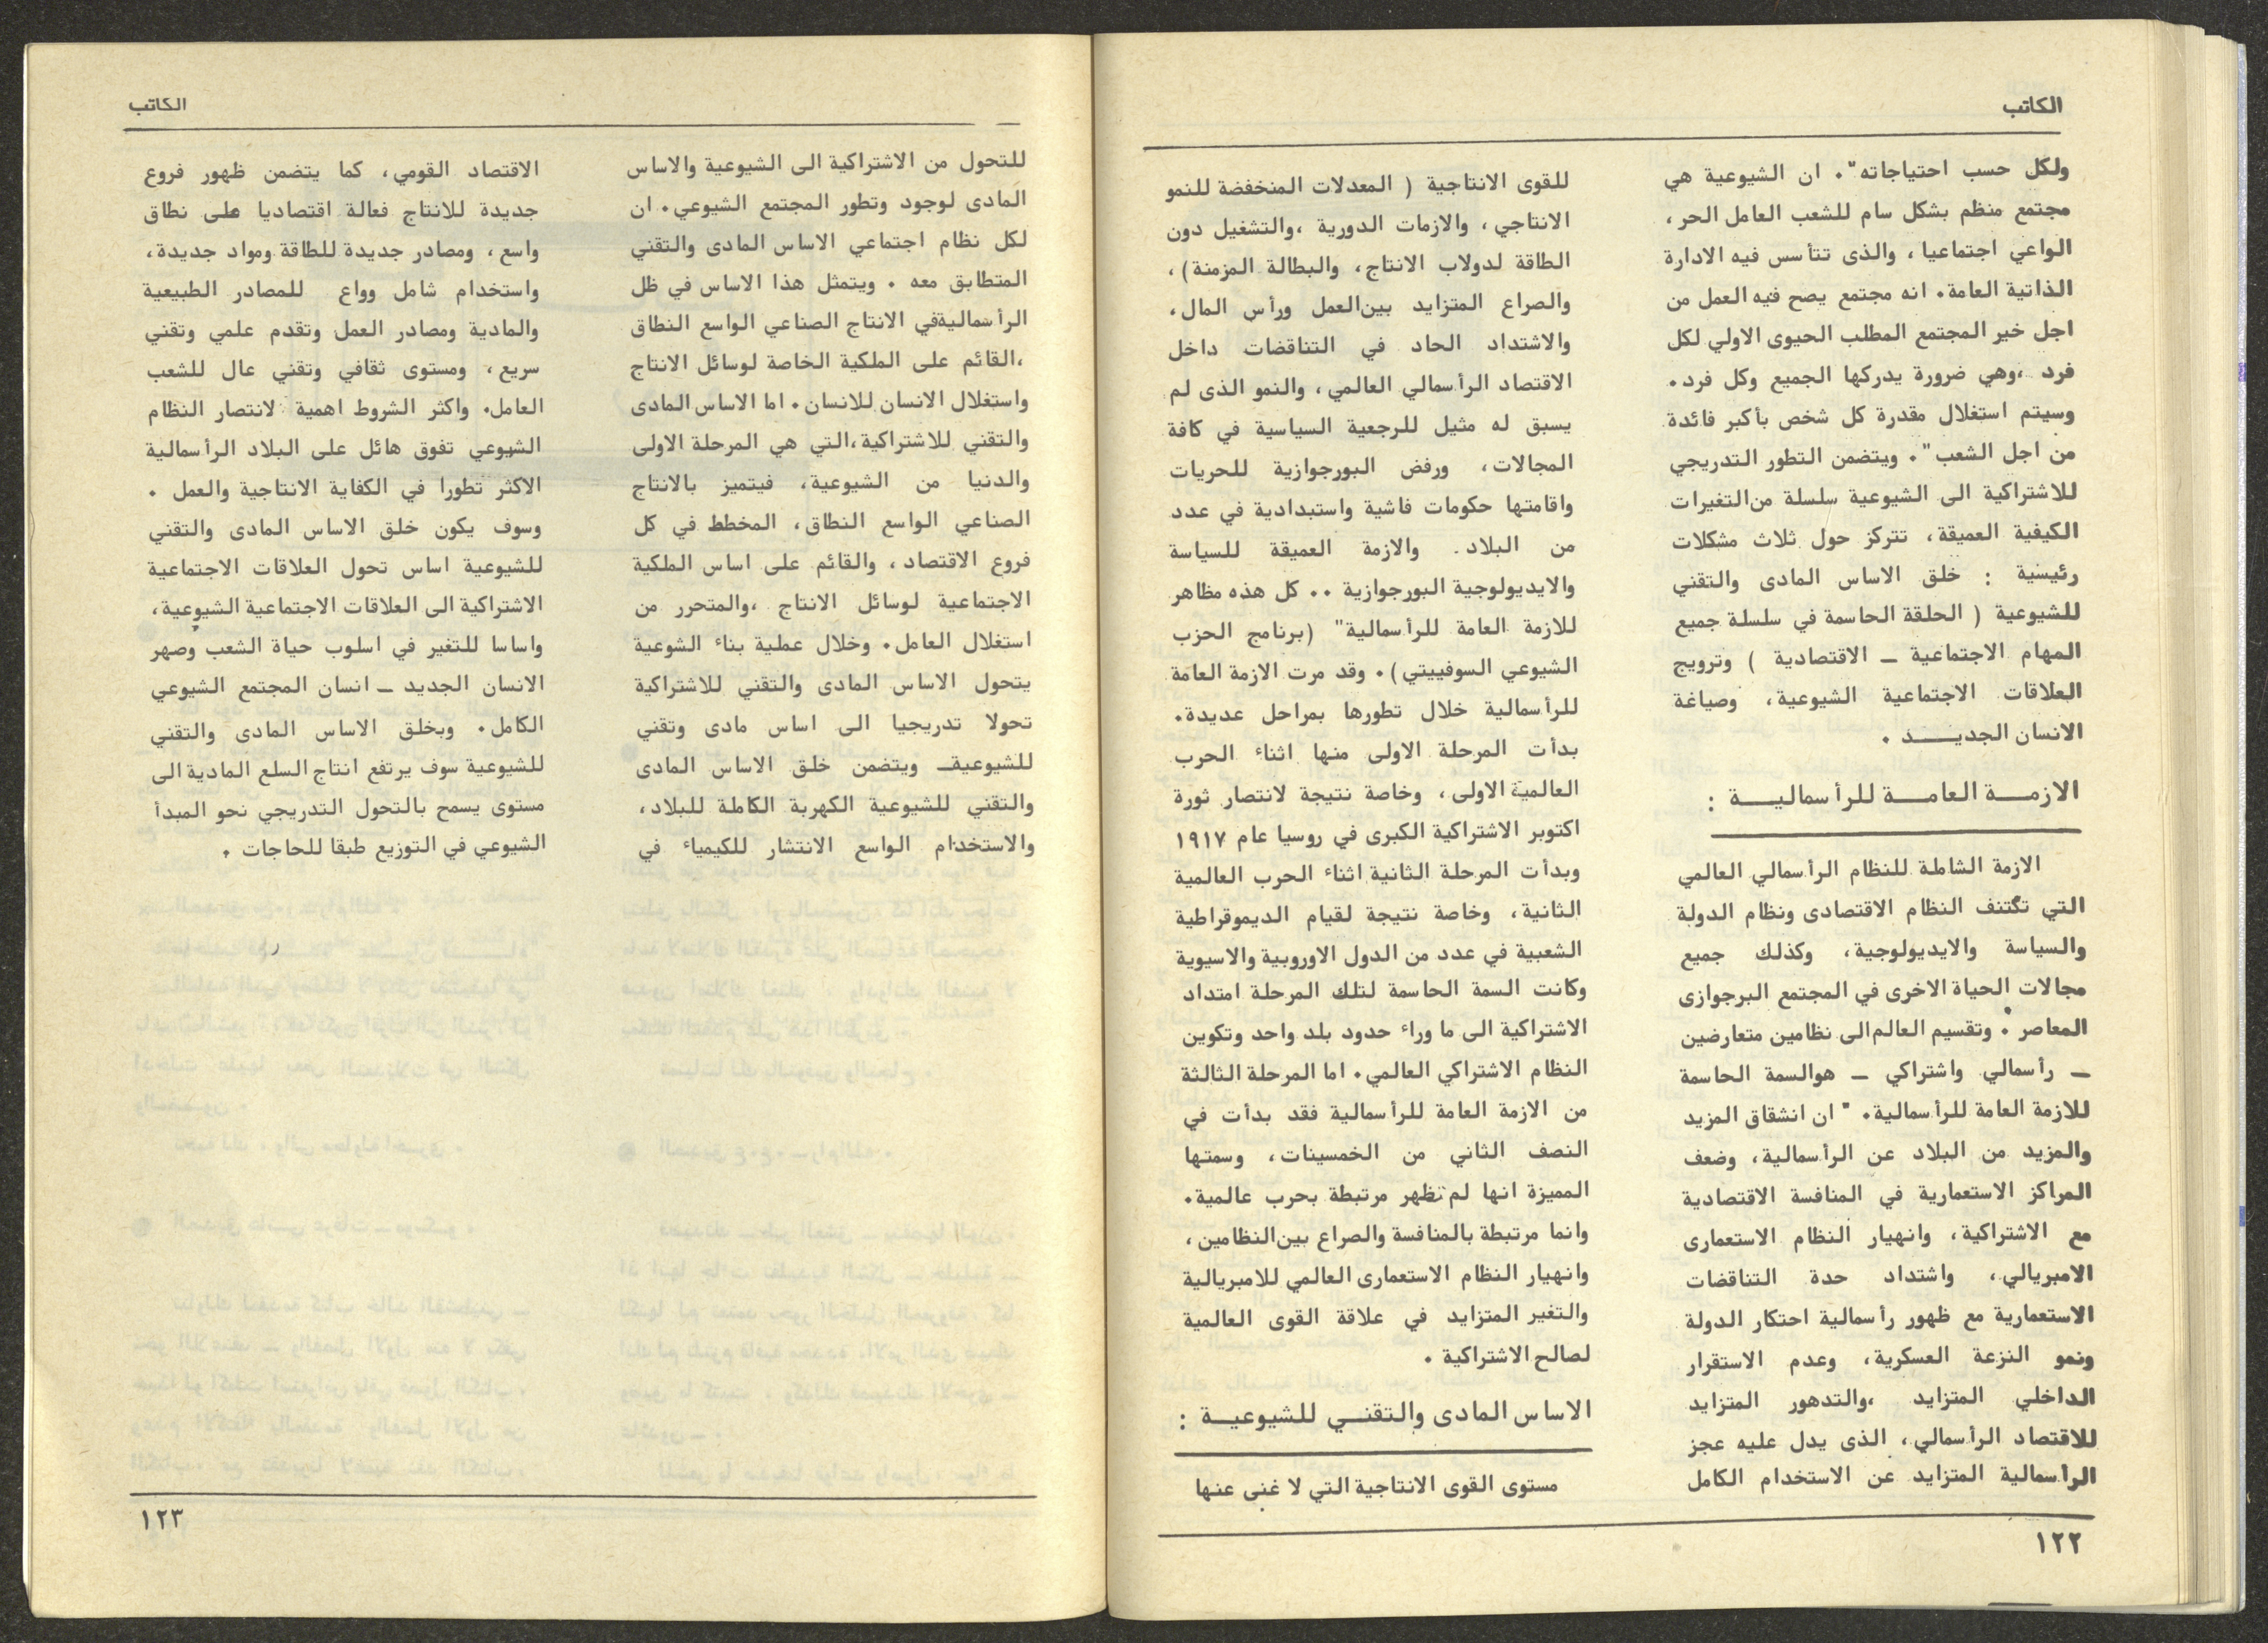 الكاتب
ولكل حسب احتياجاته". ان الشيوعية هي
مجتمع منظم بشكل سام للشعب العامل الحر،
الواعي اجتماعيا، والذى تتأسس فيه الادارة
الذاتية العامة. انه مجتمع يصح فيه العمل من
اجل خير المجتمع المطلب الحيوى الاولي لكل
فرد ،وهي ضرورة يدركها الجميع وكل فرد.
وسيتم استغلال مقدرة كل شخص بأكبر فائدة
من اجل الشعب". ويتضمن التطور التدريجي
للاشتراكية الى الشيوعية سلسلة من التغيرات
الكيفية العميقة، تتركز حول ثلاث مشكلات
رئيسية : خلق الاساس المادى والتقني
للشيوعية ( الحلقة الحاسمة في سلسلة جميع
المهام الاجتماعية ــ الاقتصادية ) وترويج
العلاقات الاجتماعية الشيوعية، وصياغة
الانسان الجديـــد .
الازمـــة العامـــة للرأسماليـــة :
الازمة الشاملة للنظام الرأسمالي العالمي
التي تكتنف النظام الاقتصادى ونظام الدولة
والسياسة والايديولوجية، وكذلك جميع
مجالات الحياة الاخرى في المجتمع البرجوازى
المعاصر . وتقسيم العالم الى نظامين متعارضين
ــ رأسمالي واشتراكي ــ هوالسمة الحاسمة
للازمة العامة للرأسمالية. " ان انشقاق المزيد
والمزيد من البلاد عن الرأسمالية، وضعف
المراكز الاستعمارية في المنافسة الاقتصادية
مع الاشتراكية، وانهيار النظام الاستعمارى
الامبريالي، واشتداد حدة التناقضات
الاستعمارية مع ظهور رأسمالية احتكار الدولة
ونمو النزعة العسكرية، وعدم الاستقرار
الداخلي المتزايد ،والتدهور المتزايد
للاقتصاد الرأسمالي، الذى يدل عليه عجز
الرأسمالية المتزايد عن الاستخدام الكامل
للقوى الانتاجية ( المعدلات المنخفضة للنمو
الانتاجي، والازمات الدورية ،والتشغيل دون
الطاقة لدولاب الانتاج، والبطالة المزمنة)،
والصراع المتزايد بين العمل ورأس المال،
والاشتداد الحاد في التناقضات داخل
الاقتصاد الرأسمالي العالمي، والنمو الذى لم
يسبق له مثيل للرجعية السياسية في كافة
المجالات، ورفض البورجوازية للحريات
واقامتها حكومات فاشية واستبدادية في عدد
من البلاد. والازمة العميقة للسياسة
والايديولوجية البورجوازية .. كل هذه مظاهر
للازمة العامة للرأسمالية" (برنامج الحزب
الشيوعي السوفييتي). وقد مرت الازمة العامة
للرأسمالية خلال تطورها بمراحل عديدة.
بدأت المرحلة الاولى منها اثناء الحرب
العالمية الاولى، وخاصة نتيجة لانتصار ثورة
اكتوبر الاشتراكية الكبرى في روسيا عام ١٩١٧
وبدأت المرحلة الثانية اثناء الحرب العالمية
الثانية، وخاصة نتيجة لقيام الديموقراطية
الشعبية في عدد من الدول الاوروبية والاسيوية
وكانت السمة الحاسمة لتلك المرحلة امتداد
الاشتراكية الى ما وراء حدود بلد واحد وتكوين
النظام الاشتراكي العالمي. اما المرحلة الثالثة
من الازمة العامة للرأسمالية فقد بدأت في
النصف الثاني من الخمسينات، وسمتها
المميزة انها لم تظهر مرتبطة بحرب عالمية.
وانما مرتبطة بالمنافسة والصراع بين النظامين،
وانهيار النظام الاستعمارى العالمي للامبريالية
والتغير المتزايد في علاقة القوى العالمية
لصالح الاشتراكية .
الاساس المادى والتقنـي للشيوعيـة :
مستوى القوى الانتاجية التي لا غنى عنها
١٢٢
الكاتب
للتحول من الاشتراكية الى الشيوعية والاساس
المادى لوجود وتطور المجتمع الشيوعي. ان
لكل نظام اجتماعي الاساس المادى والتقني
المتطابق معه . ويتمثل هذا الاساس في ظل
الرأسماليةفي الانتاج الصناعي الواسع النطاق
،القائم على الملكية الخاصة لوسائل الانتاج
واستغلال الانسان للانسان. اما الاساس المادى
والتقني للاشتراكية،التي هي المرحلة الاولى
والدنيا من الشيوعية، فيتميز بالانتاج
الصناعي الواسع النطاق، المخطط في كل
فروع الاقتصاد، والقائم على اساس الملكية
الاجتماعية لوسائل الانتاج ،والمتحرر من
استغلال العامل. وخلال عملية بناء الشوعية
يتحول الاساس المادى والتقني للاشتراكية
تحولا تدريجيا الى اساس مادى وتقني
للشيوعيةــ ويتضمن خلق الاساس المادى
والتقني للشيوعية الكهربة الكاملة للبلاد،
والاستخدام الواسع الانتشار للكيمياء في
الاقتصاد القومي، كما يتضمن ظهور فروع
جديدة للانتاج فعالة اقتصاديا على نطاق
واسع، ومصادر جديدة للطاقة ومواد جديدة،
واستخدام شامل وواع للمصادر الطبيعية
والمادية ومصادر العمل وتقدم علمي وتقني
سريع، ومستوى ثقافي وتقني عال للشعب
العامل. واكثر الشروط اهمية لانتصار النظام
الشيوعي تفوق هائل على البلاد الرأسمالية
الاكثر تطورا في الكفاية الانتاجية والعمل .
وسوف يكون خلق الاساس المادى والتقني
للشيوعية اساس تحول العلاقات الاجتماعية
الاشتراكية الى العلاقات الاجتماعية الشيوعية،
واساسا للتغير في اسلوب حياة الشعب وصهر
الانسان الجديد ــ انسان المجتمع الشيوعي
الكامل. وبخلق الاساس المادى والتقني
للشيوعية سوف يرتفع انتاج السلع المادية الى
مستوى يسمح بالتحول التدريجي نحو المبدأ
الشيوعي في التوزيع طبقا للحاجات .
١٢٣